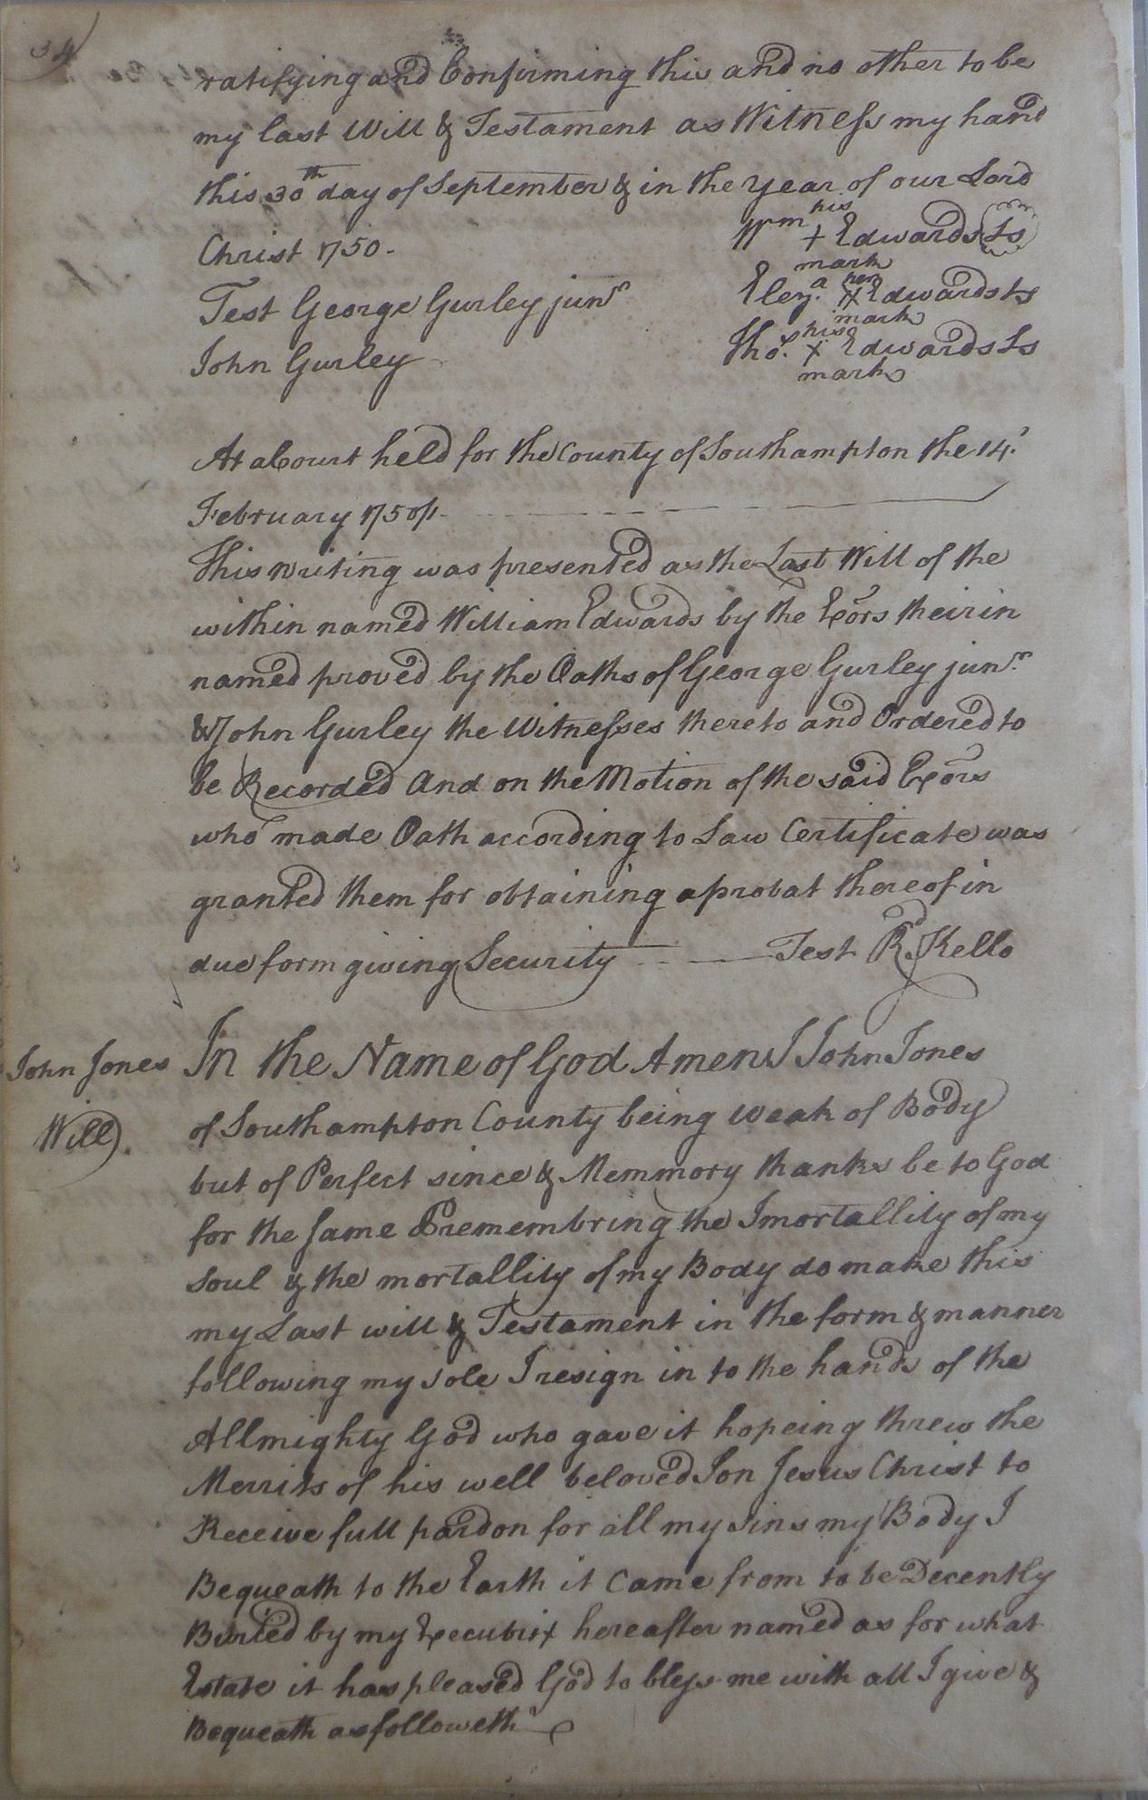 34
ratifying and Confirming this and no other to be
my last Will & Testament as Witness my hand
this 30th day of September & in the year of our Lord
Christ 1750.
Wm his + mark Edwards Ls
Test George Gurley junr
Elezа. her X mark Edwards Ls
John Gurley
Thos. his X mark Edwards Ls
At a Court held for the County of Southampton the 14.
February 1750/1
This writing was presented as the Last Will of the
within named William Edwards by the Exors theirin
named proved by the Oaths of George Gurley junr.
& John Gurley the Witnesses thereto and Ordered to
be Recorded And on the Motion of the said Exors
who made Oath according to Law Certificate was
granted them for obtaining a probat thereof in
due form giving Security Test Rd. Kello
John Jones
Will.
In the Name of God Amen I John Jones
of Southampton County being weak of Body
but of Perfect since & Memmory thanks be to God
for the same & remembring the Imortallity of my
Soul & the mortallity of my Body do make this
my Last will & Testament in the form & manner
following my sole I resign in to the hands of the
Allmighty God who gave it hopeing threw the
Merrits of his well beloved Son Jesus Christ to
Receive full pardon for all my Sins my Body I
Bequeath to the Earth it Came from to be Decently
Buried by my Executrix hereafter named as for what
Estate it has pleased God to bless me with all I give &
Bequeath as followeth